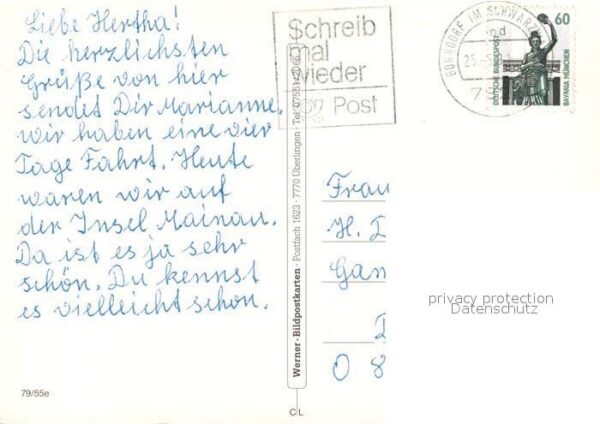 Liebe Hertha!
Die herzlichsten
Grüße von hier
sendet Dir Marianne,
wir haben eine vier
Tage Fahrt. Heute
waren wir auf
der Insel Mainau.
Da ist es ja sehr
schön. Du kennst
es vielleicht schon.
79/55e
Werner-Bildpostkarten · Postfach 1623 · 7770 Überlingen
C L
Schreib
mal
wieder
Post
BONNDORF IM SCHWARZ
60
DEUTSCHE BUNDESPOST
BAVARIA MÜNCHEN
Frau
H.
O 8
privacy protection
Datenschutz